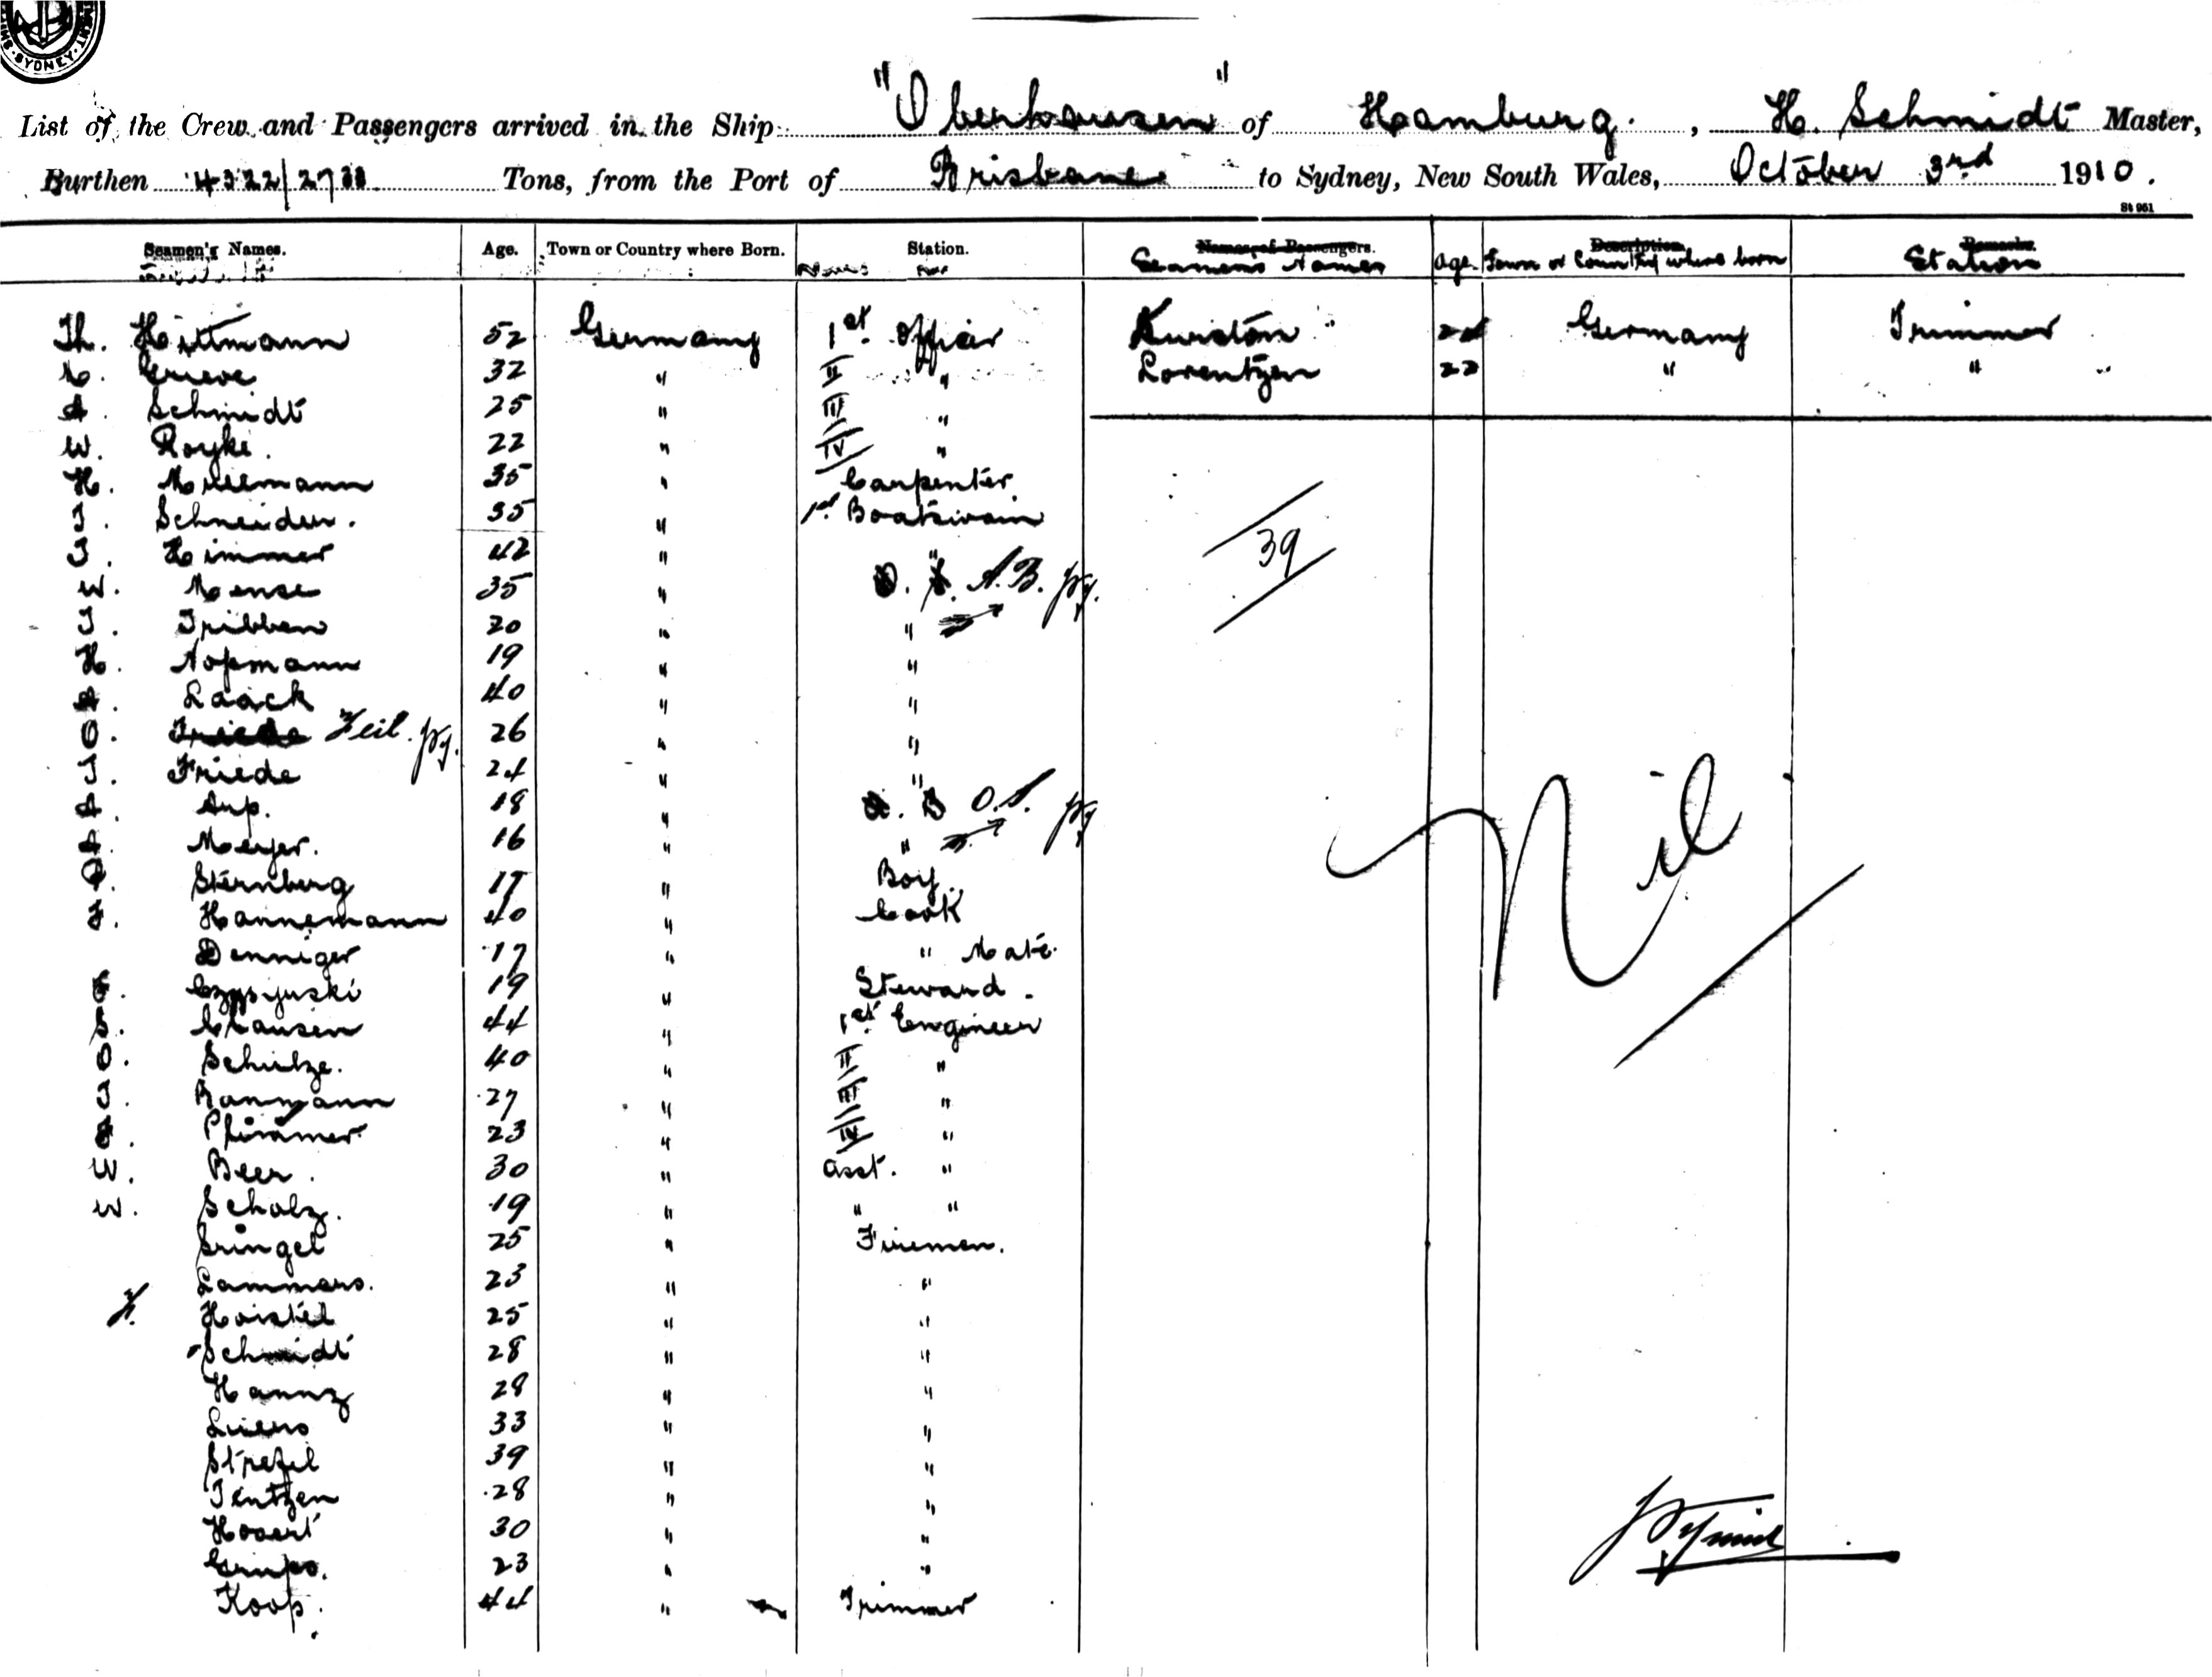 SYDNEY
List of the Crew and Passengers arrived in the Ship "Oberhausen" of Hamburg, H. Schmidt Master,
Burthen 4322/2733 Tons, from the Port of Brisbane to Sydney, New South Wales, October 3rd 1910.
St 951
Seamen's Names. Age. Town or Country where Born. Station. Names of Passengers. Description Remarks.
Seamens Names Age Town or Country where born Station
Th. Hittmann 52 Germany 1st Officer Kurston Germany Trimmer
Grieve 32 " II " Lorentzen 22 " "
A. Schmidt 25 " III "
W. Royke. 22 " IV "
H. 35 " Carpenter
J. Schneider. 35 " 1st Boatswain
J. Himmer 42 " "
W. Mense 35 " A.B.
39
J. Tribben 20 " "
H. Nopmann 19 " "
A. Laack 40 " "
O. Zeil. 26 " "
J. Friede 24 " "
A. Arp. 18 " O.S.
A. Meyer. 16 " "
Nil
P. Sternberg 17 " Boy.
F. Hannemann 40 " Cook
Denniger 17 " " Mate.
19 " Steward.
S. Clausen 44 " 1st Engineer
O. Schulze. 40 " II "
J. 27 " III "
23 " IV "
W. Beer. 30 " Asst. "
W. Scholz. 19 " " "
25 " Firemen.
Lammers. 23 " "
25 " "
Schmidt 28 " "
Hannz 29 " "
Lüers 33 " "
39 " "
Jentzen 28 " "
30 " "
23 " "
Koop. 44 " Trimmer